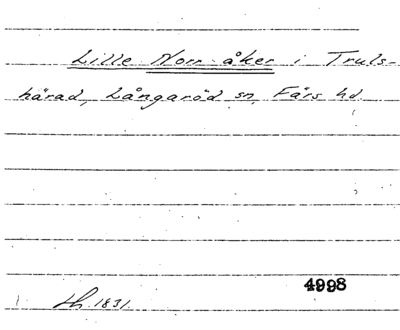 Lille Norr åker i Truls-
härad, Långaröd sn, Färs hd.
4998
1831.